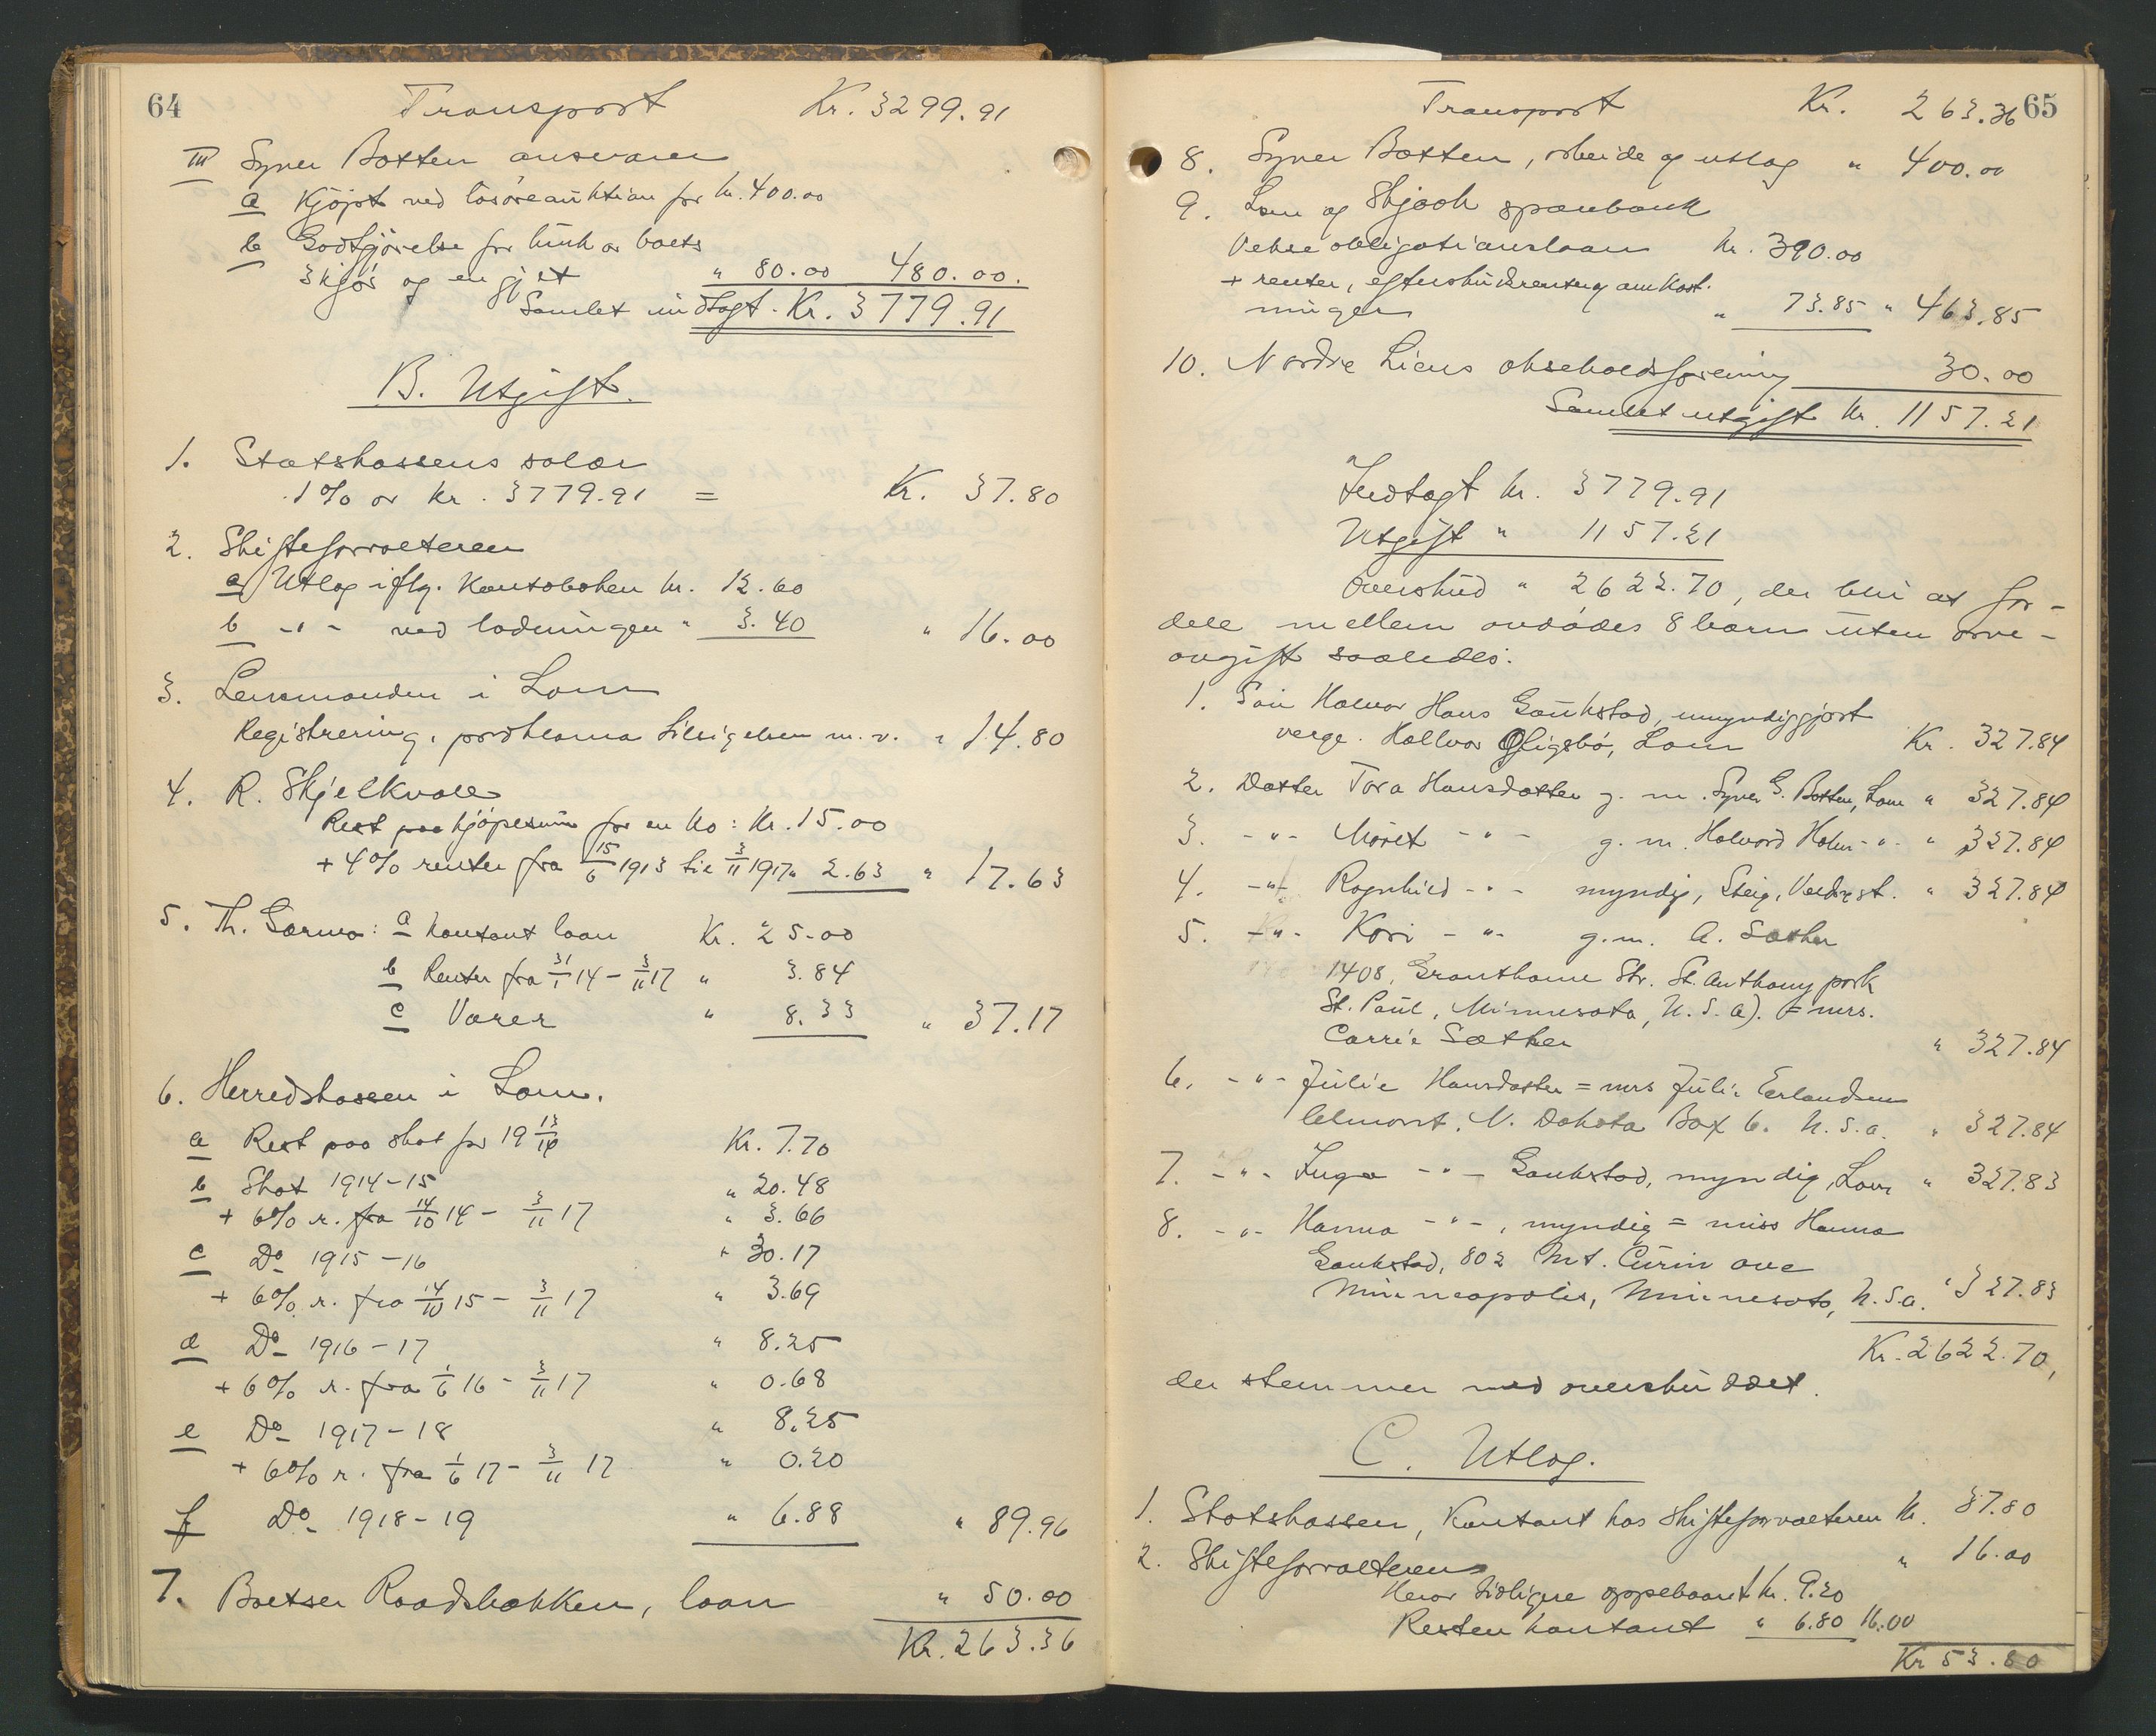 64
Transport Kr. 3299.91
III Syver Botten ansvarer
a Kjöpt ved lösöreauktion for kr. 400.00
b Godtgjörelse for bruk av boets
3 kjör og en gjet " 80.00 480.00.
Samlet indtægt. Kr. 3779.91
B. Utgift.
1. Statskassens salær
1% av kr. 3779.91 = Kr. 37.80
2. Skifteforvalteren
a Utlæg iflg. Kontoboken kr. 12.60
b -"- ved lodningen " 3.40 " 16.00
3. Lensmanden i Lom
Registrering, proklama tilsigelsen m.v. " 14.80
4. R. Skjelkvale
Rest paa kjöpesum for en ko: Kr. 15.00
+ 4% renter fra 15/6 1913 til 3/11 1917 " 2.63 " 17.63
5. Th. Garmo: a Kontant laan Kr. 25.00
b Renter fra 31/1 14 - 3/11 17 " 3.84
c Varer " 8.33 " 37.17
6. Herredskassen i Lom.
a Rest paa skat for 19 13/14 Kr. 7.70
b Skat 1914-15 " 20.48
+ 6% r. fra 14/10 14 - 3/11 17 " 3.66
c Do 1915-16 " 30.17
+ 6% r. fra 14/10 15 - 3/11 17 " 3.69
d Do 1916-17 " 8.25
+ 6% r. fra 1/6 16 - 3/11 17 " 0.68
e Do 1917-18 " 8.25
+ 6% r. fra 1/6 17 - 3/11 17 " 0.20
f Do 1918-19 " 6.88 " 89.96
7. Raadsbakken, laan " 50.00
Kr. 263.36
65
Transport Kr. 263.36
8. Syver Botten, arbeide og utlæg " 400.00
9. Lom og Skjaak sparebank
Vekselobligationslaan kr. 390.00
+ renter, efterskudsrenter og omkost-
ninger " 73.85 " 463.85
10. Nordre Liens avholdsforening 30.00
Samlet utgift kr. 1157.21
Indtægt kr. 3779.91
Utgift " 1157.21
Overskud " 2622.70, der blir at for-
dele mellem avdödes 8 barn uten arve-
avgift saaledes:
1. Sön Halvor Hans Gaukstad, umyndiggjort
verge. Hallvor Lom Kr. 327.84
2. Datter Tora Hansdatter g. m. Syver G. Botten, Lom " 327.84
3. -"- Märet -"- g. m. Halvord Holm -"- " 327.84
4. -"- Ragnhild -"- myndig, Steig, " 327.84
5. -"- Kari -"- g. m. A. Sæther
1408, Granthame Str. St. Anthony park
St. Paul, Minnesota, U.S.A). = mrs.
Carrie Sæther " 327.84
6. -"- Julie Hansdatter = mrs Julie Erlandsen
N. Dakota Box 6. U.S.A. " 327.84
7. -"- Inga -"- Gaukstad, myndig, Lom " 327.83
8. -"- Hanna -"-, myndig = miss Hanna
Gaukstad, 802 Mt. Curin ave
Minneapolis, Minnesota, U.S.A. " 327.83
Kr. 2622.70,
der stemmer med overskuddet.
C. Utlæg.
1. Statskassen, Kontant hos skifteforvalteren kr. 37.80
2. Skifteforvalteren " 16.00
Herav tidligere oppebaaret kr. 9.20
Resten kontant " 6.80 16.00
Kr 53.80